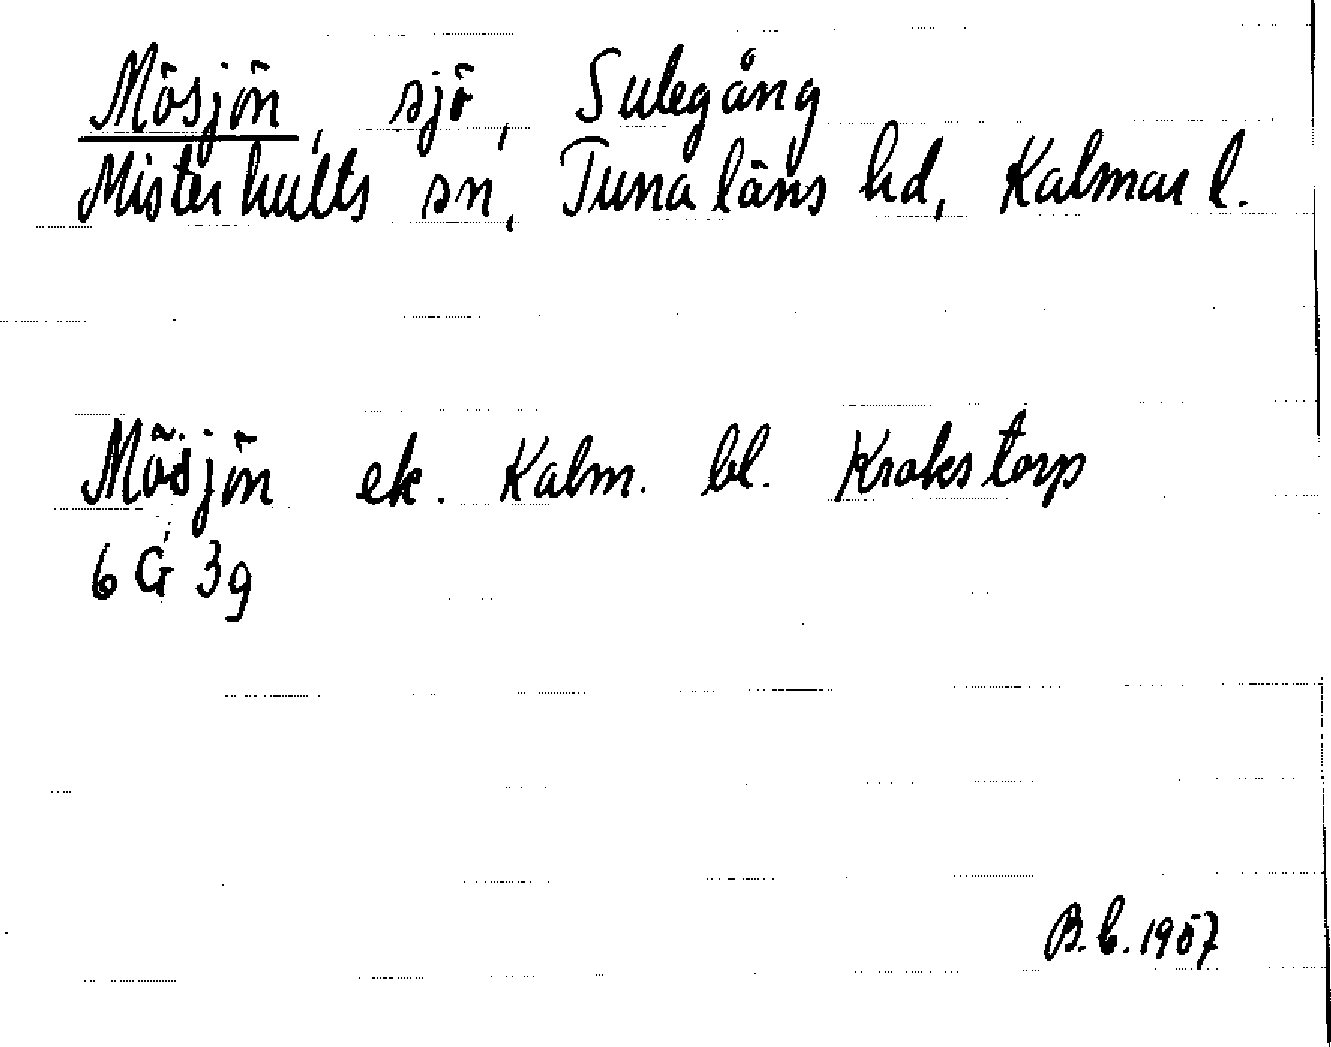 Mösjön, sjö, Sulegång
Misterhults sn, Tunaläns hd, Kalmar l.
Mösjön ek. Kalm. bl. Krokstorp
6 G 3g
1957